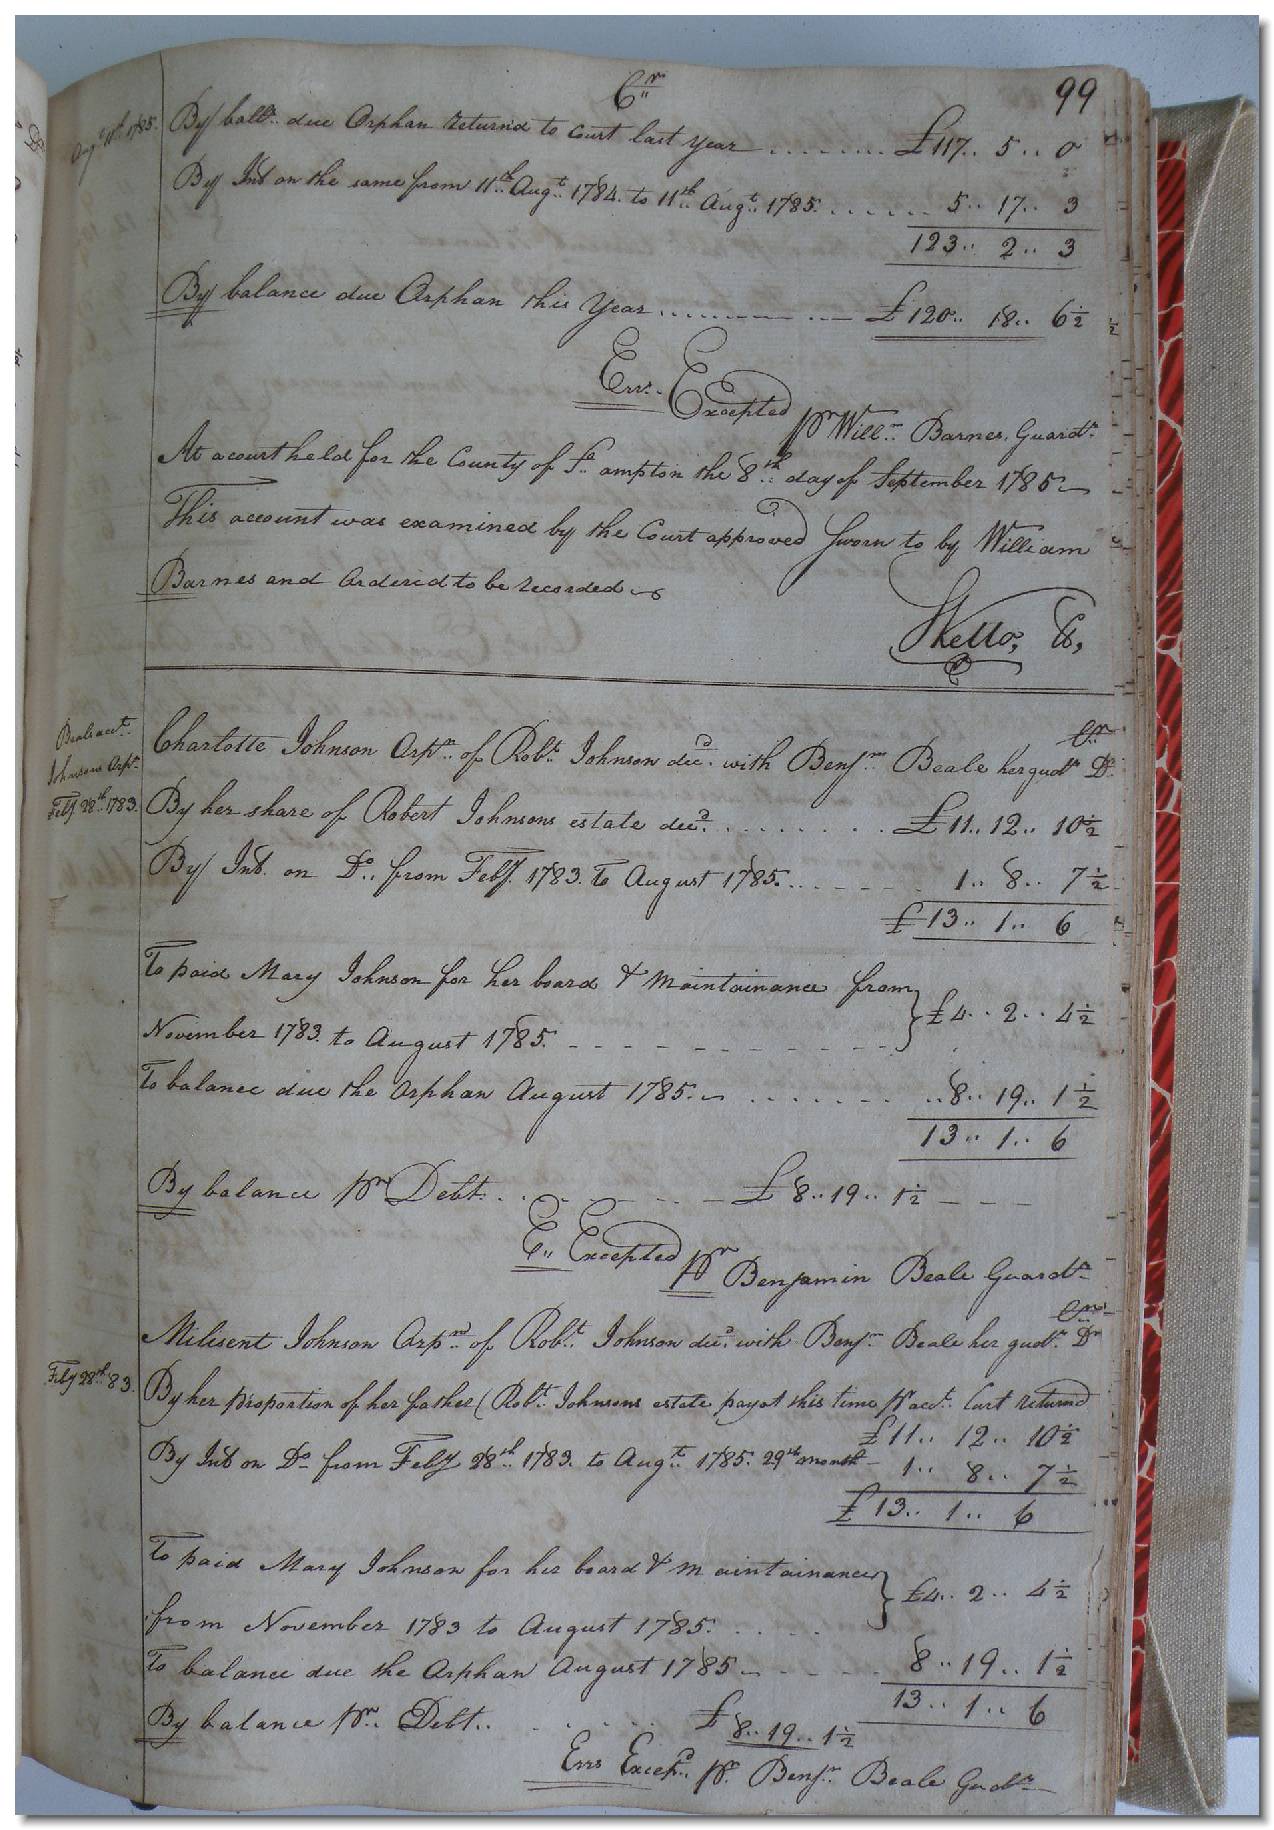 Cr
99
Augt 11th 1785.
By balle. due Orphan returnd to court last year ........ £117.. 5.. 0
By Int on the same from 11th Augt. 1784. to 11th Augt. 1785. ...... 5.. 17.. 3
123.. 2.. 3
By balance due Orphan this Year ........ £120.. 18.. 6½
Errs. Excepted
pr Willm. Barnes. Guardn.
At a court held for the County of So. ampton the 8th day of September 1785
This account was examined by the Court approved sworn to by William
Barnes and Ordered to be recorded
Kello, Ck,
Beale acct.
Johnsons Orpt.
Feby 28th 1783.
Cr
Charlotte Johnson Orpn. of Robt. Johnson decd. with Benjmn Beale her gudn Dr.
By her share of Robert Johnsons estate decd. ........ £11.. 12.. 10½
By Int. on Do. from Feby. 1783. To August 1785. ...... 1.. 8.. 7½
£13.. 1.. 6
To paid Mary Johnson for her board & Maintainance from } £4.. 2.. 4½
November 1783. to August 1785.
To balance due the Orphan August 1785. ....... ..8.. 19.. 1½
13.. 1.. 6
By balance pr Debt. .. £8..19.. 1½
E.. Excepted
pr Benjamin Beale Guardn.
Cr
Milisent Johnson Orpn. of Robt. Johnson decd. with Benjn. Beale her gudn. Dr
Feby 28th 83.
By her proportion of her father (Robt. Johnsons estate pay at this time pr acct. Curt returnd
£11.. 12.. 10½
By Int on Do from Feby 28th. 1783. to Augt. 1785. 29th month 1.. 8.. 7½
£13.. 1.. 6
To paid Mary Johnson for her board & Maintainance } £4.. 2.. 4½
from November 1783 to August 1785. ....
To balance due the Orphan August 1785 8.. 19.. 1½
13.. 1.. 6
By balance pr. Debt.. £8.. 19.. 1½
Errs Excepd. pr. Benjn. Beale Gudn.